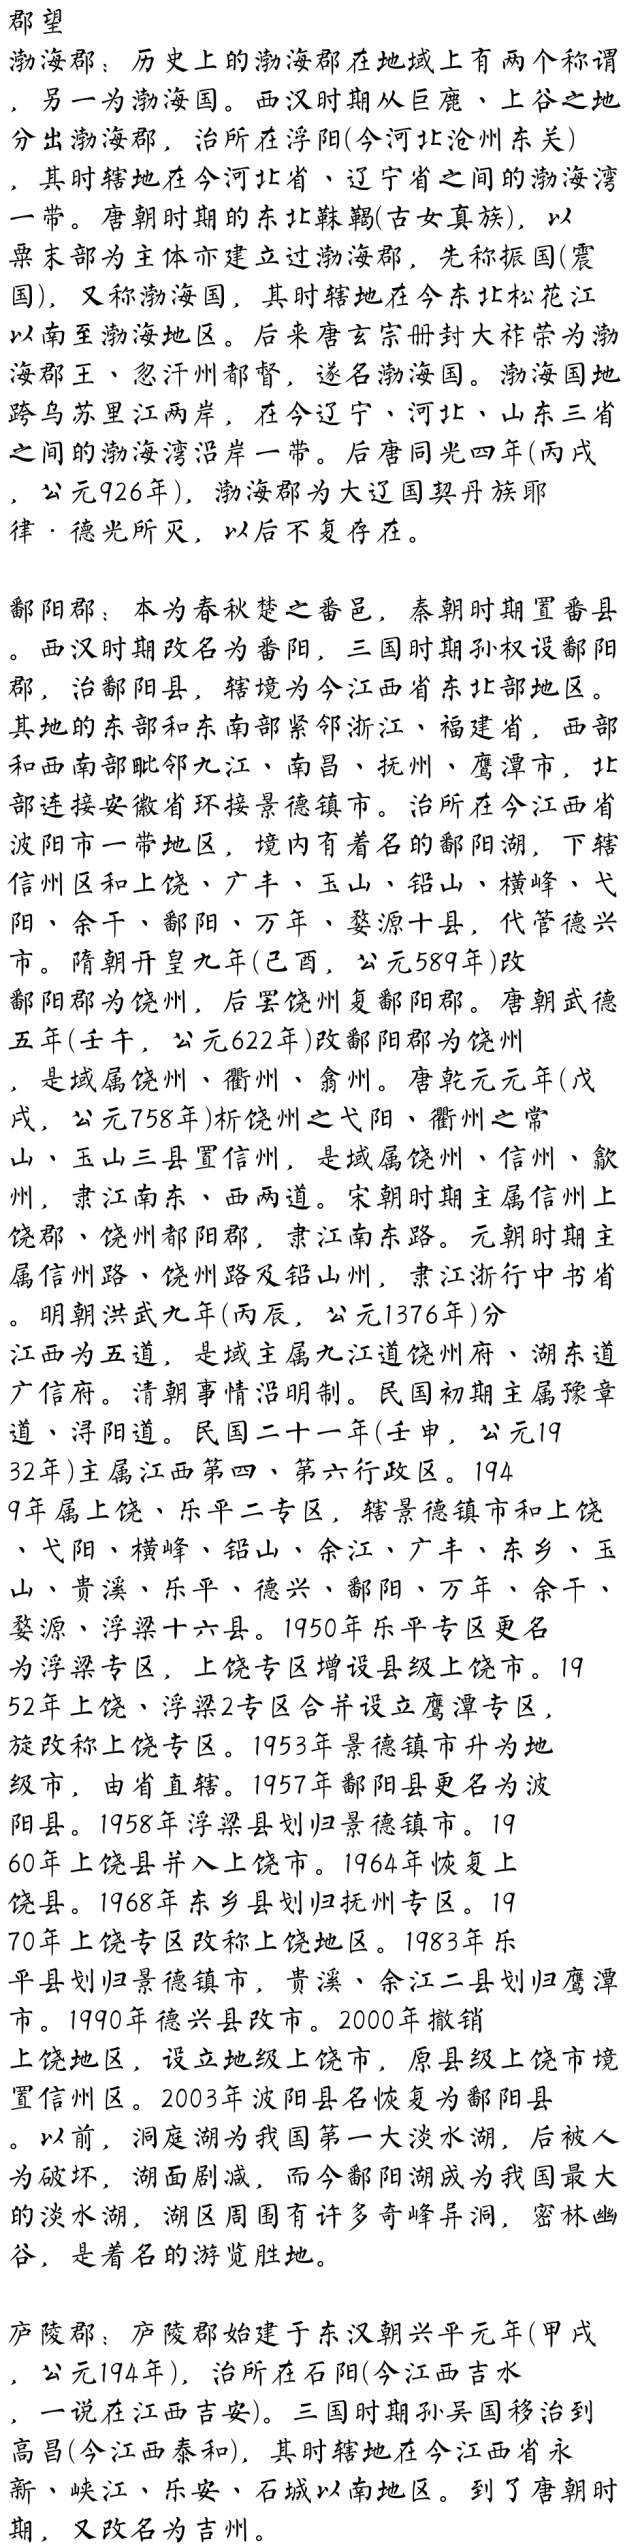 郡望
渤海郡：历史上的渤海郡在地域上有两个称谓
，另一为渤海国。西汉时期从巨鹿、上谷之地
分出渤海郡，治所在浮阳(今河北沧州东关)
，其时辖地在今河北省、辽宁省之间的渤海湾
一带。唐朝时期的东北靺鞨(古女真族)，以
粟末部为主体亦建立过渤海郡，先称振国(震
国)，又称渤海国，其时辖地在今东北松花江
以南至渤海地区。后来唐玄宗册封大祚荣为渤
海郡王、忽汗州都督，遂名渤海国。渤海国地
跨乌苏里江两岸，在今辽宁、河北、山东三省
之间的渤海湾沿岸一带。后唐同光四年(丙戌
，公元926年)，渤海郡为大辽国契丹族耶
律·德光所灭，以后不复存在。
鄱阳郡：本为春秋楚之番邑，秦朝时期置番县
。西汉时期改名为番阳，三国时期孙权设鄱阳
郡，治鄱阳县，辖境为今江西省东北部地区。
其地的东部和东南部紧邻浙江、福建省，西部
和西南部毗邻九江、南昌、抚州、鹰潭市，北
部连接安徽省环接景德镇市。治所在今江西省
波阳市一带地区，境内有着名的鄱阳湖，下辖
信州区和上饶、广丰、玉山、铅山、横峰、弋
阳、余干、鄱阳、万年、婺源十县，代管德兴
市。隋朝开皇九年(己酉，公元589年)改
鄱阳郡为饶州，后罢饶州复鄱阳郡。唐朝武德
五年(壬午，公元622年)改鄱阳郡为饶州
，是域属饶州、衢州、歙州。唐乾元元年(戊
戌，公元758年)析饶州之弋阳、衢州之常
山、玉山三县置信州，是域属饶州、信州、歙
州，隶江南东、西两道。宋朝时期主属信州上
饶郡、饶州都阳郡，隶江南东路。元朝时期主
属信州路、饶州路及铅山州，隶江浙行中书省
。明朝洪武九年(丙辰，公元1376年)分
江西为五道，是域主属九江道饶州府、湖东道
广信府。清朝事情沿明制。民国初期主属豫章
道、浔阳道。民国二十一年(壬申，公元19
32年)主属江西第四、第六行政区。194
9年属上饶、乐平二专区，辖景德镇市和上饶
、弋阳、横峰、铅山、余江、广丰、东乡、玉
山、贵溪、乐平、德兴、鄱阳、万年、余干、
婺源、浮梁十六县。1950年乐平专区更名
为浮梁专区，上饶专区增设县级上饶市。19
52年上饶、浮梁2专区合并设立鹰潭专区，
旋改称上饶专区。1953年景德镇市升为地
级市，由省直辖。1957年鄱阳县更名为波
阳县。1958年浮梁县划归景德镇市。19
60年上饶县并入上饶市。1964年恢复上
饶县。1968年东乡县划归抚州专区。19
70年上饶专区改称上饶地区。1983年乐
平县划归景德镇市，贵溪、余江二县划归鹰潭
市。1990年德兴县改市。2000年撤销
上饶地区，设立地级上饶市，原县级上饶市境
置信州区。2003年波阳县名恢复为鄱阳县
。以前，洞庭湖为我国第一大淡水湖，后被人
为破坏，湖面剧减，而今鄱阳湖成为我国最大
的淡水湖，湖区周围有许多奇峰异洞，密林幽
谷，是着名的游览胜地。
庐陵郡：庐陵郡始建于东汉朝兴平元年(甲戌
，公元194年)，治所在石阳(今江西吉水
，一说在江西吉安)。三国时期孙吴国移治到
高昌(今江西泰和)，其时辖地在今江西省永
新、峡江、乐安、石城以南地区。到了唐朝时
期，又改名为吉州。